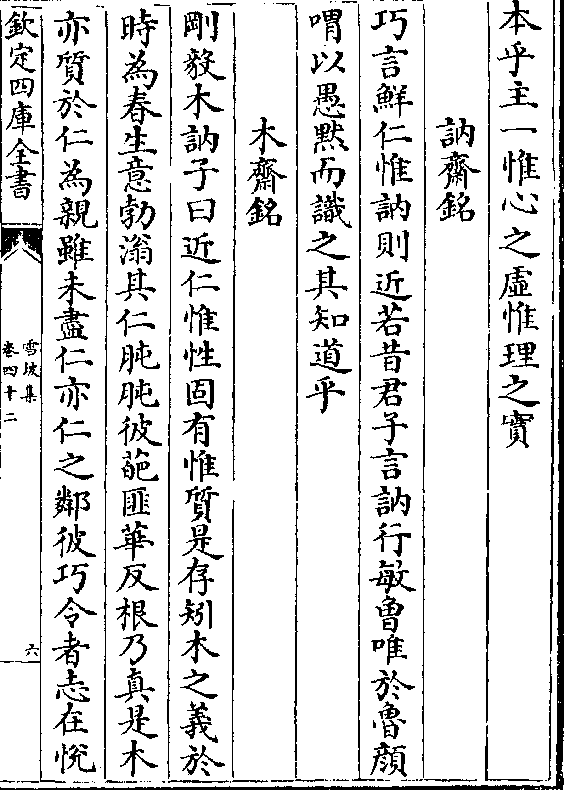 本乎主一惟心之虛惟理之實
訥齋銘
巧言鮮仁惟訥則近若昔君子言訥行敏曾唯於魯顔
喟以愚黙而識之其知道乎
木齋銘
剛毅木訥子曰近仁惟性固有惟質是存矧木之義於
時為春生意勃滃其仁肫肫彼葩匪華反根乃真是木
亦質於仁為親雖未盡仁亦仁之鄰彼巧令者志在恱
欽定四庫全書
雪坡集
卷四十二
六